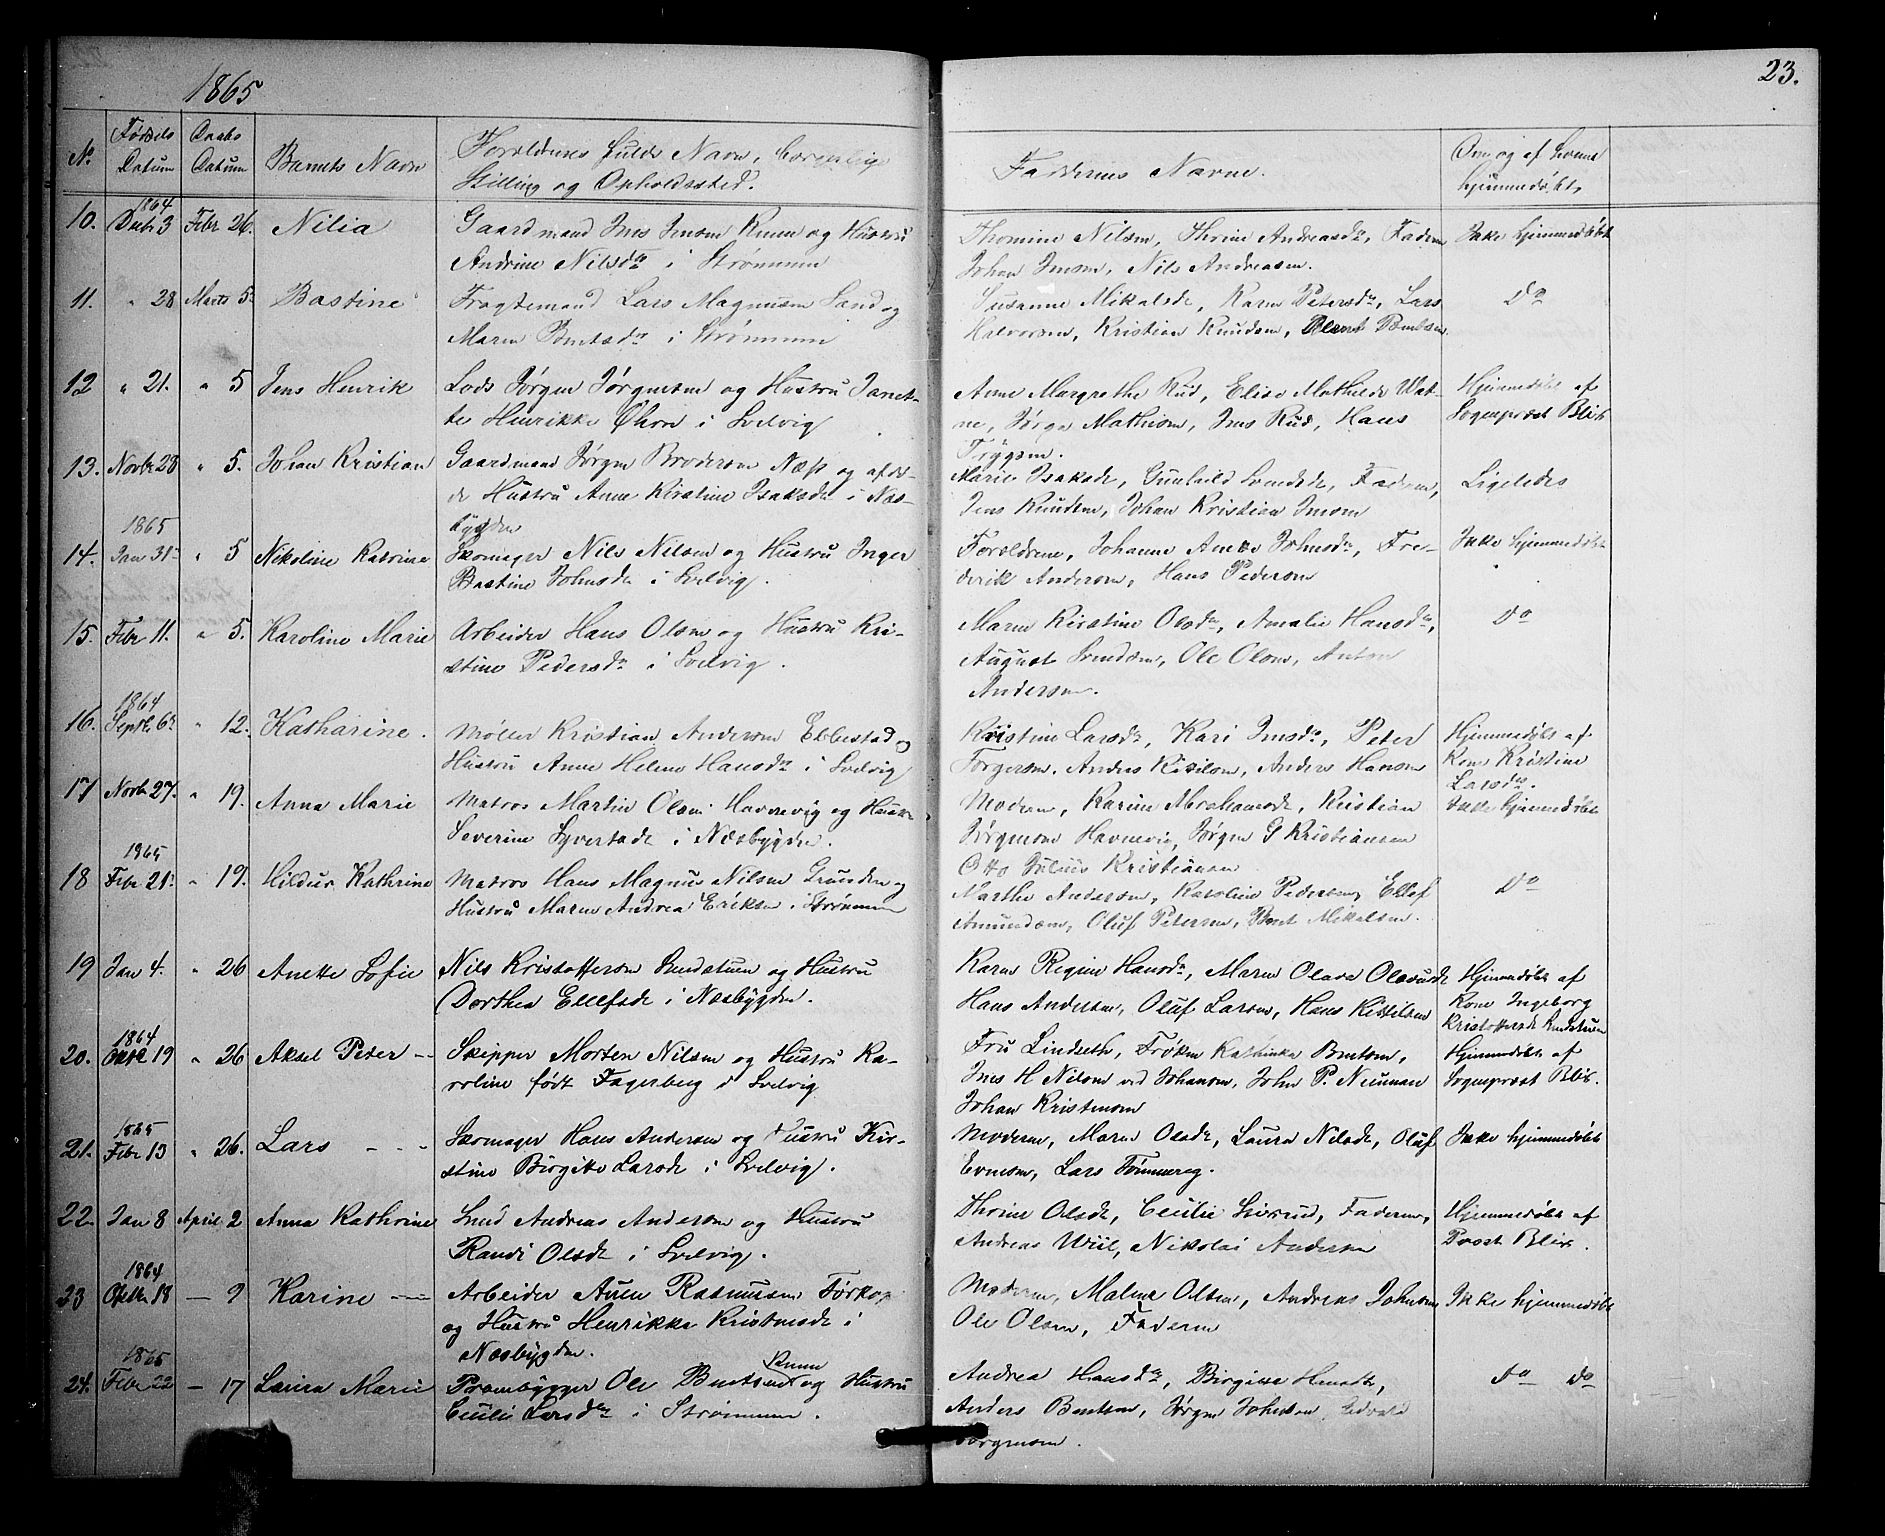 1865
23.
No Fødsels Datum Daabs Datum Barnets Navn Forældrenes fulde Navn, borgerlige Stilling og Opholdssted. Faddernes Navne. Om og af hvem hjemmedøbt.
10. 1864 Decbr 3 Febr 26. Nilia Gaardmand Jens Jensen og Hustru
Andrine Nilsdr i Strømmen
Thomine Nilsen, Thrine Andreasdr, Faderen
Johan Jensen, Nils Andreasen.
Ikke hjemmedøbt
11. " 28 Marts 5. Bastine Fragtemand Lars Magnusen Sand og
Maren Bentsdr i Strømmen
Susanne Mikalsdr, Karen Petersdr, Lars
Halvorsen, Kristian Knudsen, Bent Bentsen
Do
12 " 21. " 5 Jens Henrik Lods Jørgen Jørgensen og Hustru Janet-
te Henrikke Øhrn i Svelvig
Anne Margrethe Rud, Elise Mathilde Wat-
ne, Jørgen Mathisen, Jens Rud, Hans
Trygsen.
Hjemmedøbt af
Sogneprest Blix
13. Novbr 28 " 5. Johan Kristian Gaardmand Jørgen Brodersen Næss og afdø-
de Hustru Anne Kirstine Isaksdr i Næs-
bygden
Marie Isaksdr, Gunhild Svendsdr, Faderen,
Jens Knudsen, Johan Kristian Jensen
Ligeledes
14. 1865 Jan 31 " 5 Nikoline Katrine Skomager Nils Nilsen og Hustru Inger
Bastine Johnsdr i Svelvig.
Forældrene, Johanne Johnsdr, Fre-
derik Andersen, Hans Pedersen
Ikke hjemmedøbt
15. Febr 11. " 5. Karoline Marie Arbeider Hans Olsen og Hustru Kri-
stine Pedersdr i Svelvig.
Maren Kirstine Olsdr, Amalie Hansdr,
August Svendsen, Ole Olsen, Anton
Andersen.
Do
16. 1864 Septbr 6 " 12. Katharine. Møller Kristian Andersen Ebbestad og
Hustru Anne Helene Hansdr i Svelvig
Kristine Larsdr, Kari Jensdr, Peter
Torgersen, Anders Kittilsen, Anders Hansen
Hjemmedøbt af
Kone Kristine
Larsdr.
17 Novbr 27. " 19. Anna Marie Matros Martin Olsen Havnevig og Hustru
Severine Syvertsdr i Næsbygden.
Moderen, Karine Abrahamsdr, Kristian
Jørgensen Havnevig, Jørgen G Kristiansen
Otto Julius Kristiansen
Ikke hjemmedøbt
18 1865 Febr 21 " 19. Hildur Kathrine Matros Hans Magnus Nilsen Grunden og
Hustru Maren Andrea Eriksen i Strømmen
Marthe Andersen, Karoline Pedersen, Ellef
Amundsen, Oluf Petersen, Bent Mikalsen.
Do
19 Jan 4. " 26 Anette Sofie Nils Kristoffersen og Hustru
Dorthea Ellefsdr i Næsbygden.
Karen Regine Hansdr, Maren Olava Olavesdr
Hans Andersen, Oluf Larsen, Hans Kittilsen
Hjemmedøbt af
Kone Ingeborg
Kristoffersdr
20. 1864 Oktbr 19 " 26 Aksel Peter -- Skipper Morten Nilsen og Hustru Ka-
roline født Fagerberg i Svelvig
Fru Lindseth, Frøken Kathinka Bentsen,
Jens H Nilsen ved Johansen, John P. Neuman
Johan Kristensen
Hjemmedøbt af
Sogneprest Blix.
21. 1865 Febr 13 " 26. Lars - - - Skomager Hans Andersen og Hustru Kir-
stine Birgitte Larsdr i Svelvig.
Moderen, Maren Olsdr, Laura Nilsdr, Oluf
Evensen, Lars Tømmerag.
Ikke hjemmedøbt
22. Jan 8 April 2 Anna Kathrine Smed Andreas Andersen og Hustru
Randi Olsdr i Svelvig.
Thrine Olsdr, Cecilie Siverud, Faderen,
Andreas Wiil, Nikolai Andersen
Hjemmedøbt af
Prost Blix.
23 1864 Oktbr 18 — 9 Karine --- Arbeider Auen Rasmusen Førkop
og Hustru Henrikke Kristensdr i
Næsbygden.
Moderen, Malene Olsen, Andreas Johnsen
Ole Olsen, Faderen
Ikke hjemmedøbt
24. 1865 Febr 22 — 17 Laura Marie Prambygger Ole Bentsen og Hustru
Cecilie Larsdr i Strømmen.
Andrea Hansdr, Birgitte
Anders Bentsen, Jørgen Johnsen, Edvard
Jørgensen.
Do Do